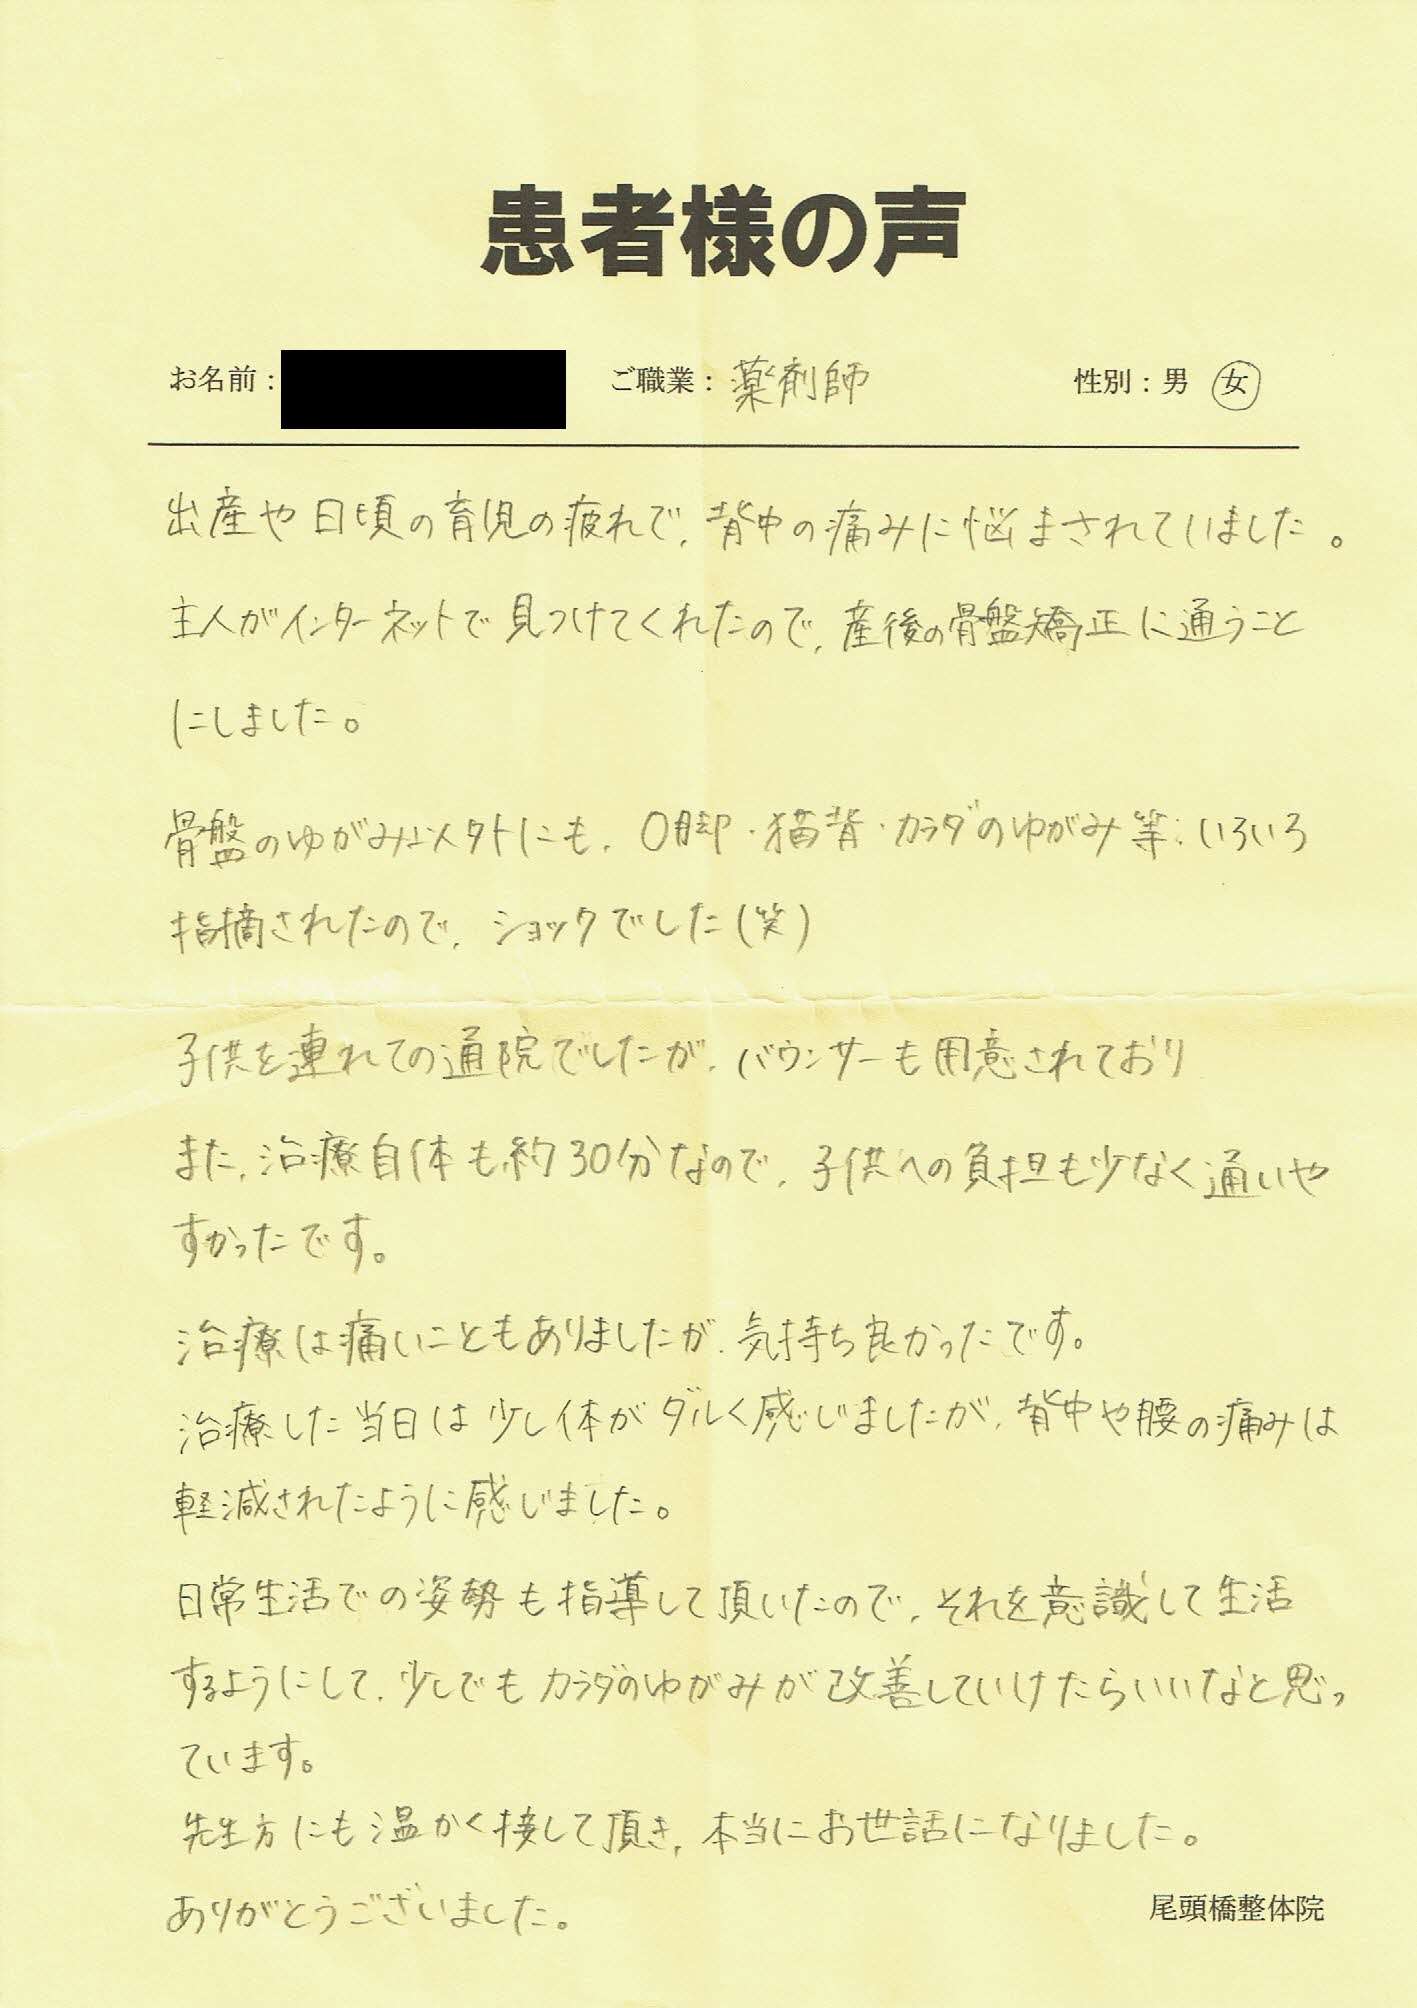 患者様の声
お名前： ご職業：薬剤師 性別：男 女
出産や日頃の育児の疲れで、背中の痛みに悩まされていました。
主人がインターネットで見つけてくれたので、産後の骨盤矯正に通うこと
にしました。
骨盤のゆがみ以外にも、O脚・猫背・カラダのゆがみ等、いろいろ
指摘されたので、ショックでした(笑)
子供を連れての通院でしたが、バウンサーも用意されており
また、治療自体も約30分なので、子供への負担も少なく通いや
すかったです。
治療は痛いこともありましたが、気持ち良かったです。
治療した当日は少し体がダルく感じましたが、背中や腰の痛みは
軽減されたように感じました。
日常生活での姿勢も指導して頂いたので、それを意識して生活
するようにして、少しでもカラダのゆがみが改善していけたらいいなと思っ
ています。
先生方にも温かく接して頂き、本当にお世話になりました。
ありがとうございました。
尾頭橋整体院